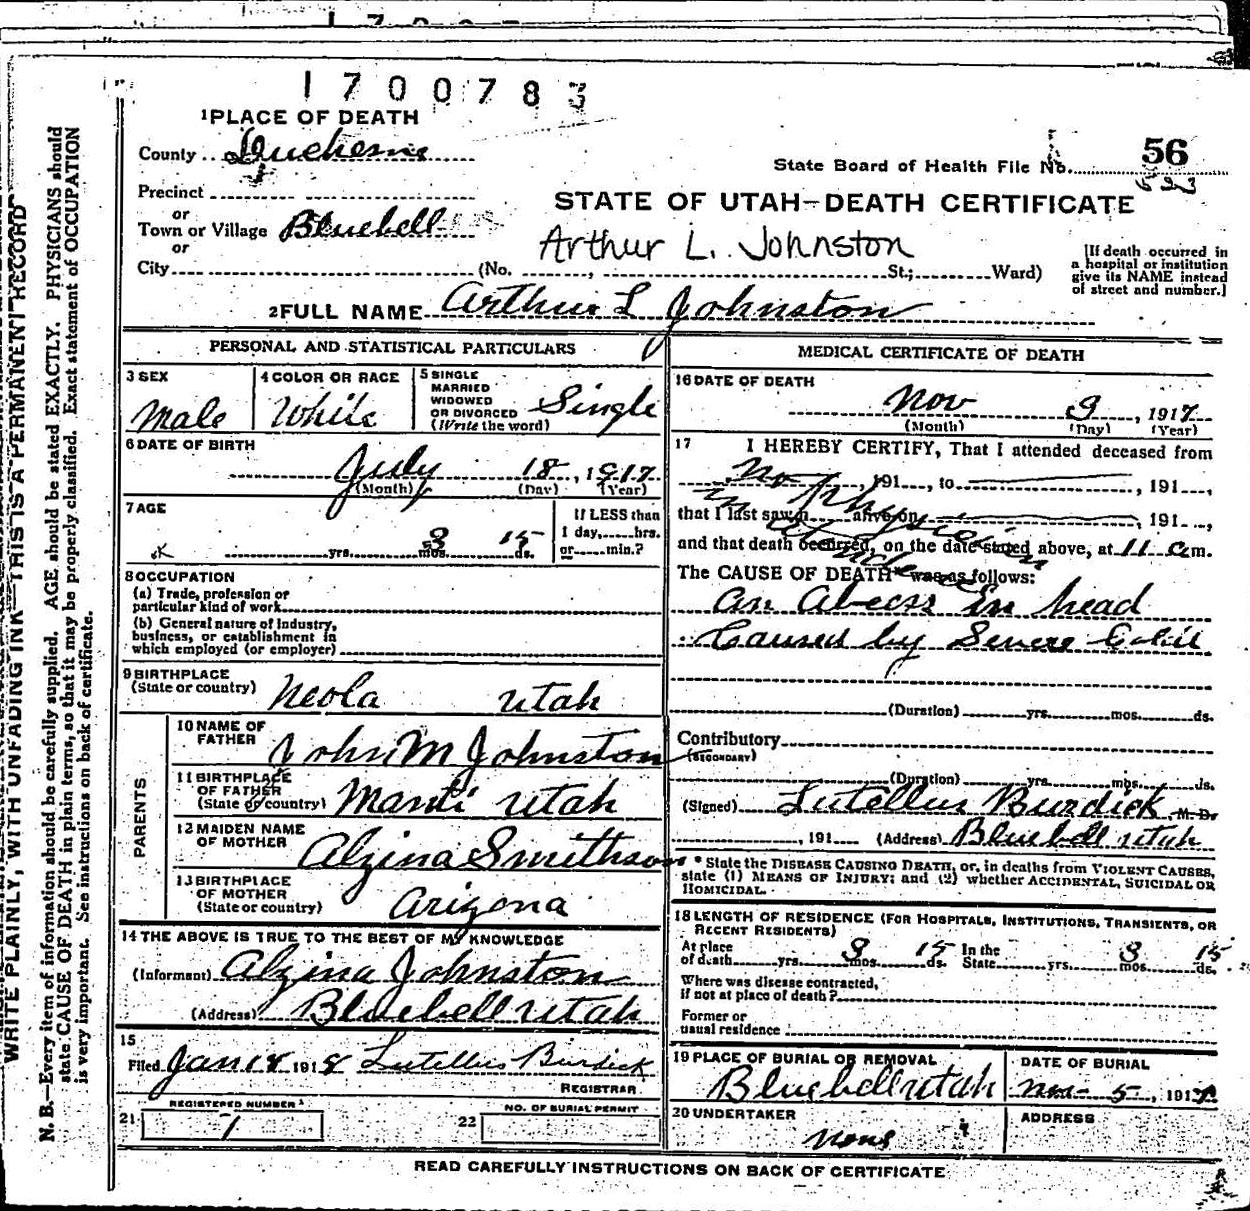 1700783
1 PLACE OF DEATH
County Duchesne
State Board of Health File No. 56
Precinct
STATE OF UTAH—DEATH CERTIFICATE
or
Town or Village Bluebell
Arthur L. Johnston
or
City (No. , St.; Ward)
[If death occurred in a hospital or institution give its NAME instead of street and number.]
2 FULL NAME Arthur L Johnston
PERSONAL AND STATISTICAL PARTICULARS
3 SEX
Male
4 COLOR OR RACE
White
5 SINGLE
MARRIED
WIDOWED
OR DIVORCED
(Write the word)
Single
6 DATE OF BIRTH
July 18, 1917
(Month) (Day) (Year)
7 AGE
yrs. 3 mos. 15 ds.
If LESS than
1 day, hrs.
or min.?
8 OCCUPATION
(a) Trade, profession or
particular kind of work
(b) General nature of industry,
business, or establishment in
which employed (or employer)
9 BIRTHPLACE
(State or country) Neola Utah
PARENTS
10 NAME OF
FATHER John M Johnston
11 BIRTHPLACE
OF FATHER
(State or country) Manti Utah
12 MAIDEN NAME
OF MOTHER Alzina Smithson
13 BIRTHPLACE
OF MOTHER
(State or country) Arizona
14 THE ABOVE IS TRUE TO THE BEST OF MY KNOWLEDGE
(Informant) Alzina Johnston
(Address) Bluebell Utah
15
Filed Jan 18 1918 Lutellus Burdick
REGISTRAR
21 REGISTERED NUMBER
1
22 NO. OF BURIAL PERMIT
MEDICAL CERTIFICATE OF DEATH
16 DATE OF DEATH
Nov 3, 1917
(Month) (Day) (Year)
17 I HEREBY CERTIFY, That I attended deceased from
, 191 , to , 191 ,
that I last saw h alive on , 191 ,
No Physician in attendence
and that death occurred, on the date stated above, at 11 a m.
The CAUSE OF DEATH* was as follows:
an Abecss in head
Caused by Severe Cold
(Duration) yrs. mos. ds.
Contributory
(SECONDARY)
(Duration) yrs. mos. ds.
(Signed) Lutellus Burdick M. D.
, 191 (Address) Bluebell Utah
* State the DISEASE CAUSING DEATH, or, in deaths from VIOLENT CAUSES,
state (1) MEANS OF INJURY; and (2) whether ACCIDENTAL, SUICIDAL OR
HOMICIDAL.
18 LENGTH OF RESIDENCE (FOR HOSPITALS, INSTITUTIONS, TRANSIENTS, OR
RECENT RESIDENTS)
At place of death yrs. 3 mos. 15 ds. In the State yrs. 3 mos. 15 ds.
Where was disease contracted,
if not at place of death?
Former or
usual residence
19 PLACE OF BURIAL OR REMOVAL
Bluebell Utah
DATE OF BURIAL
Nov 5, 1917
20 UNDERTAKER
none
ADDRESS
READ CAREFULLY INSTRUCTIONS ON BACK OF CERTIFICATE
WRITE PLAINLY, WITH UNFADING INK—THIS IS A PERMANENT RECORD
N. B.—Every item of information should be carefully supplied. AGE should be stated EXACTLY. PHYSICIANS should
state CAUSE OF DEATH in plain terms, so that it may be properly classified. Exact statement of OCCUPATION
is very important. See instructions on back of certificate.